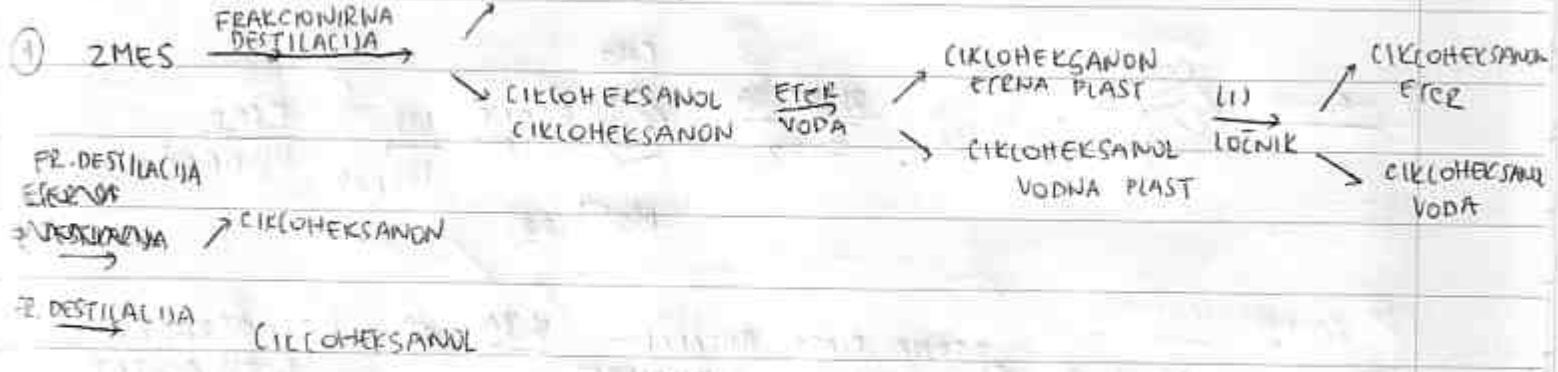 1 ZMES FRAKCIONIRNA DESTILACIJA
CIKLOHEKSANOL
CIKLOHEKSANON
ETER
VODA
CIKLOHEKSANON
ETERNA PLAST
CIKLOHEKSANOL
VODNA PLAST
LIJ
LOČNIK
CIKLOHEKSANON
ETER
CIKLOHEKSANOL
VODA
FR. DESTILACIJA
CIKLOHEKSANON
FR. DESTILACIJA
CIKLOHEKSANOL